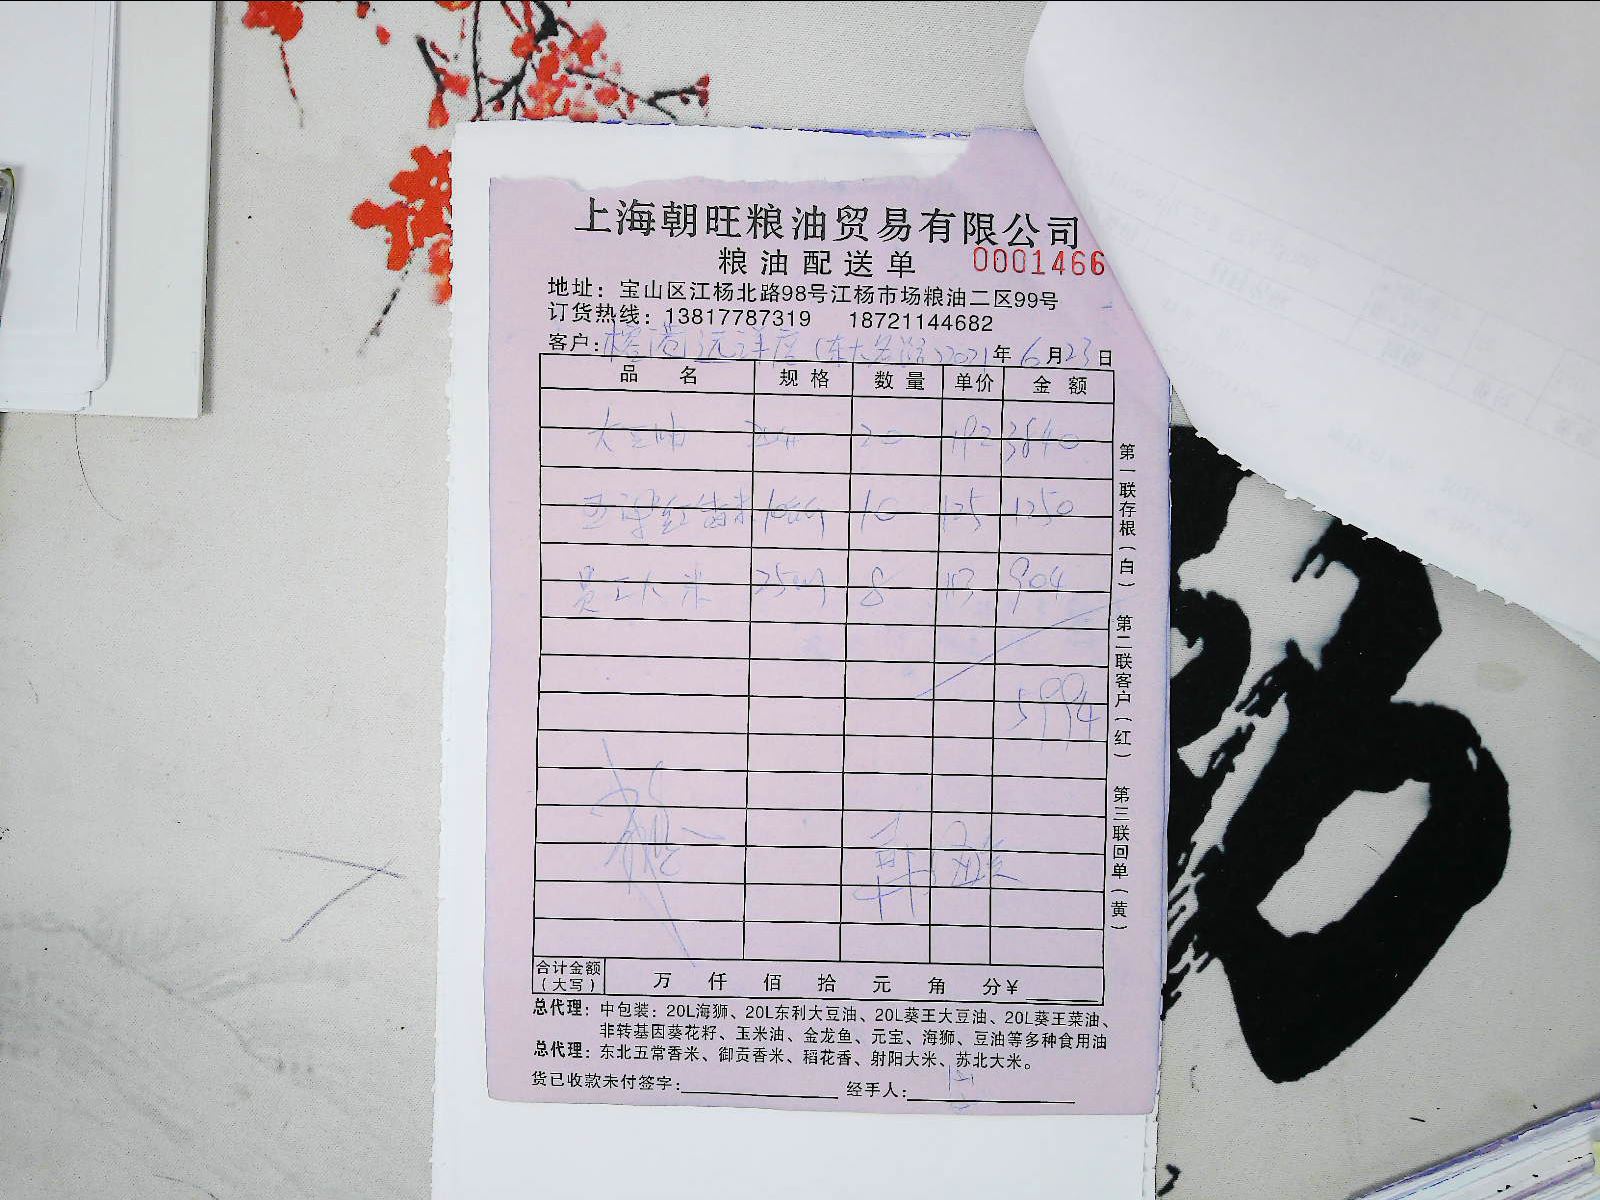 上海朝旺粮油贸易有限公司
粮油配送单 0001466
地址：宝山区江杨北路98号江杨市场粮油二区99号
订货热线：13817787319 18721144682
客户： 2021年6月23日
品名 规格 数量 单价 金额
大豆油 20 192 3840
10KG 10 125 1250
员工大米 25KG 8 113 904
5994
合计金额（大写） 万 仟 佰 拾 元 角 分¥
总代理：中包装：20L海狮、20L东利大豆油、20L葵王大豆油、20L葵王菜油、
非转基因葵花籽、玉米油、金龙鱼、元宝、海狮、豆油等多种食用油
总代理：东北五常香米、御贡香米、稻花香、射阳大米、苏北大米。
货已收款未付签字： 经手人：
第一联存根（白）
第二联客户（红）
第三联回单（黄）